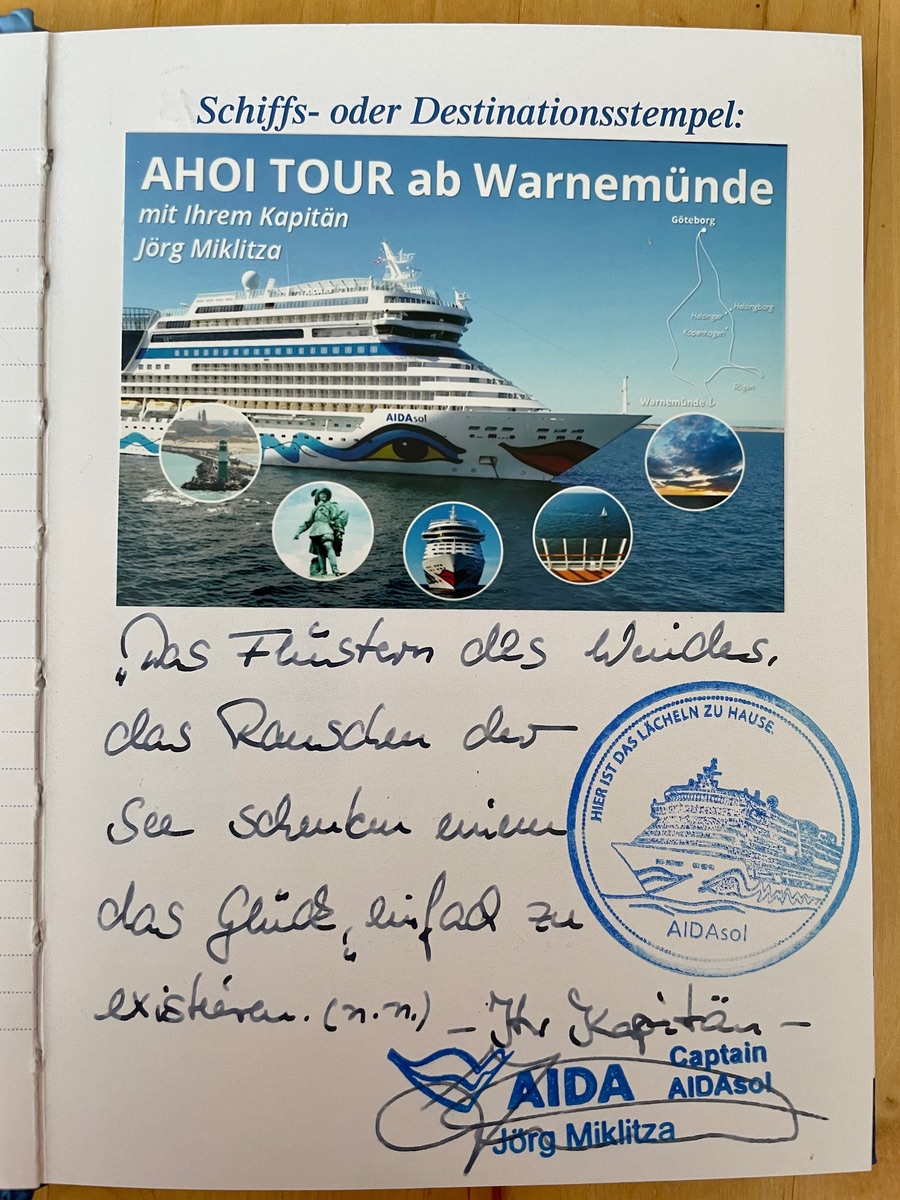 Schiffs- oder Destinationsstempel:
AHOI TOUR ab Warnemünde
mit Ihrem Kapitän
Jörg Miklitza
Göteborg
Helsingborg
Helsingør
Kopenhagen
Rügen
Warnemünde
AIDAsol
„Das Flüstern des Windes,
das Rauschen der
See schenken einem
das Glück, einfach zu
existieren. (n.n.) – Ihr Kapitän –
HIER IST DAS LÄCHELN ZU HAUSE.
AIDAsol
AIDA
Captain
AIDAsol
Jörg Miklitza